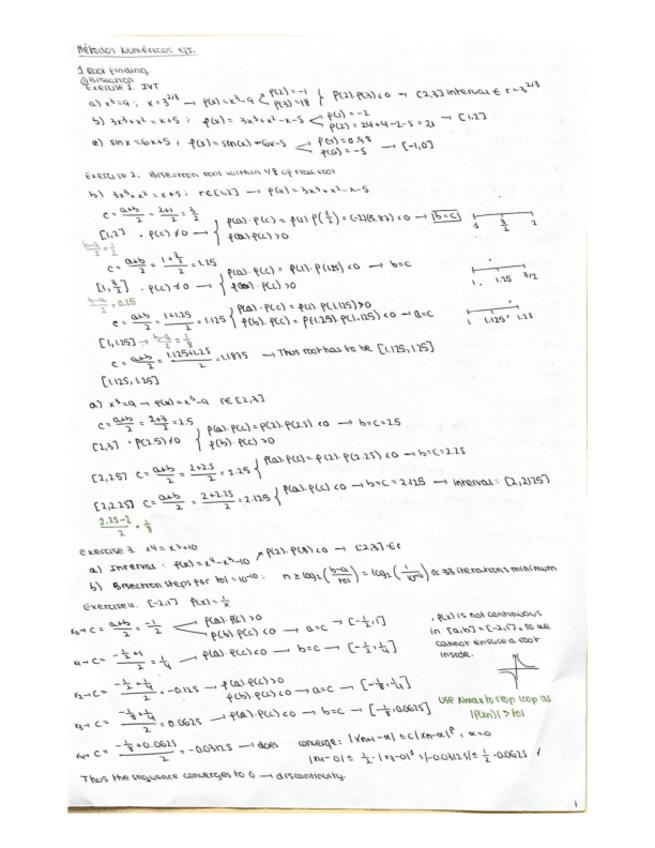 Métodos Numéricos ejs.
1 Root Finding.
@Bisection
Exercise 1. IVT
a) x³=9 ; x=3^2/3 → f(x)=x³-9 < f(2)=-1 f(3)=18 } f(2)·f(3)<0 → [2,3] interval ∈ r=3^2/3
b) 3x³+x²=x+5 ; f(x)=3x³+x²-x-5 < f(1)=-2 f(2)=24+4-2-5=21 → [1,2]
Exercise 2. Bisection root within 1/8 of real root
b) 3x³+x²=x+5 ; r∈[1,2] → f(x)=3x³+x²-x-5
c = a+b/2 = 2+1/2 = 3/2
[1,2] · f(c)≠0 → { f(a)·f(c) = f(1)·f(3/2) <0 → b=c
f(b)·f(c)>0
b-a/2 = 1/2
1 3/2 2
c = a+b/2 = 1+3/2/2 = 1.25
[1,3/2] · f(c)≠0 → { f(a)·f(c) = f(1)·f(1.25) <0 → b=c
f(b)·f(c)>0
b-a/2 = 0.25
1 1.25 3/2
c = a+b/2 = 1+1.25/2 = 1.125 { f(a)·f(c) = f(1)·f(1.125)>0
f(b)·f(c) = f(1.25)·f(1.125) <0 → a=c
1 1.125 1.25
[1,1.25] → b-a/2 = 1/8
c = a+b/2 = 1.125+1.25/2 = 1.1875 → Thus root has to be [1.125,1.25]
[1.125,1.25]
a) x³=9 → f(x)=x³-9 r∈[2,3]
c = a+b/2 = 2+3/2 = 2.5
[2,3] · f(2.5)≠0 { f(a)·f(c)=f(2)·f(2.5) <0 → b=c=2.5
f(b)·f(c) >0
[2,2.5] c = a+b/2 = 2+2.5/2 = 2.25 { f(a)·f(c) = f(2)·f(2.25) <0 → b=c=2.25
[2,2.25] c = a+b/2 = 2+2.25/2 = 2.125 { f(a)·f(c) <0 → b=c=2.125 → interval: [2,2.125]
2.25-2/2 = 1/8
Exercise 3. x4 = x³+10
a) Interval: f(x)=x⁴-x³-10 ↗ f(2)·f(3)<0 → [2,3]∈r
b) Bisection steps for tol=10^-10: n ≥ log₂(b-a/tol) = log₂(1/10^-10) ≅ 33 iterations minimum
Exercise 4. [-2,1] f(x)=1/x
x0→C = a+b/2 = -1/2 < f(a)·f(c) >0
f(b)·f(c) <0 → a=c → [-1/2,1]
x1→C = -1/2+1/2 = 1/4 → f(a)·f(c)<0 → b=c → [-1/2,1/4]
x2→C = -1/2+1/4/2 = -0.125 → f(a)·f(c)>0
f(b)·f(c)<0 → a=c → [-1/8,1/4]
x3→C = -1/8+1/4/2 = 0.0625 → f(a)·f(c)<0 → b=c → [-1/8,0.0625]
x4→C = -1/8+0.0625/2 = -0.03125 → does converge: |xn+1-α| ≤ c|xn-α|^p, α=0
· f(x) is not continuous
in [a,b]=[-2,1], so we
cannot ensure a root
inside.
use Nmax to stop loop as
|f(xn)|>tol
Thus the sequence converges to 0 → discontinuity.
1